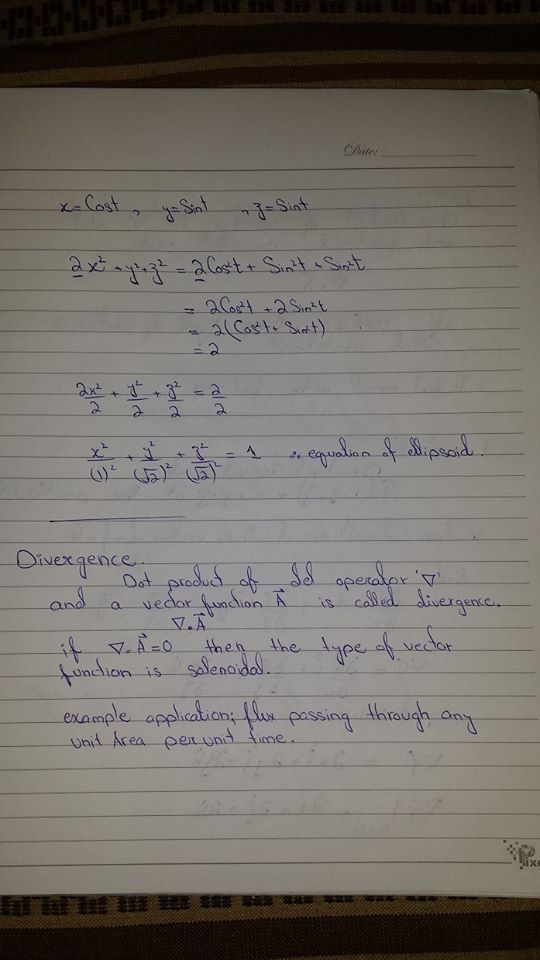 Date:
x=Cost, y=Sint, z=Sint
2x² + y² + z² = 2Cos²t + Sin²t + Sin²t
= 2Cos²t + 2Sin²t
= 2(Cos²t + Sin²t)
= 2
2x²/2 + y²/2 + z²/2 = 2/2
x²/(1)² + y²/(√2)² + z²/(√2)² = 1 ∴ equation of ellipsoid.
Divergence.
Dot product of del operator '∇'
and a vector function A⃗ is called divergence.
∇.A⃗
if ∇.A⃗=0 then the type of vector
function is solenoidal.
example application; flux passing through any
unit Area per unit time.